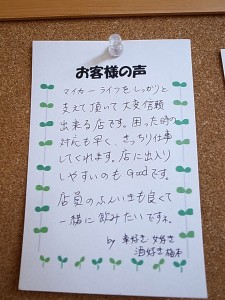 お客様の声
マイカーライフをしっかりと
支えて頂いて大変信頼
出来る店です。困った時の
対応も早く、きっちり仕事
してくれます。店に出入り
しやすいのもGoodです。
店員のふんいきも良くて
一緒に飲みたいですネ。
by 車好き 女好き
酒好き 梅木